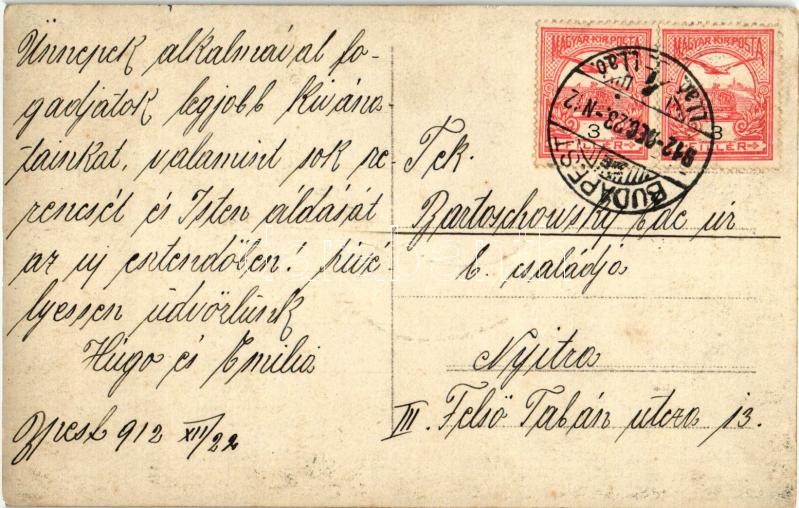 Ünnepek alkalmával fo-
gadjátok legjobb kiváno-
tainkat, valamint sok sze-
rencsét és Isten áldását
az uj esztendőben! Szivé-
lyessen üdvözlünk
Húgo és Emilia
912 XII/22
MAGYAR KIR. POSTA
MAGYAR KIR. POSTA
3
3
FILLÉR
BUDAPEST
912 DEC. 23 - N 12
Tek.
Bartoschowsky úr
b. családja
Nyitra
III. Felső Tabán utcza 13.